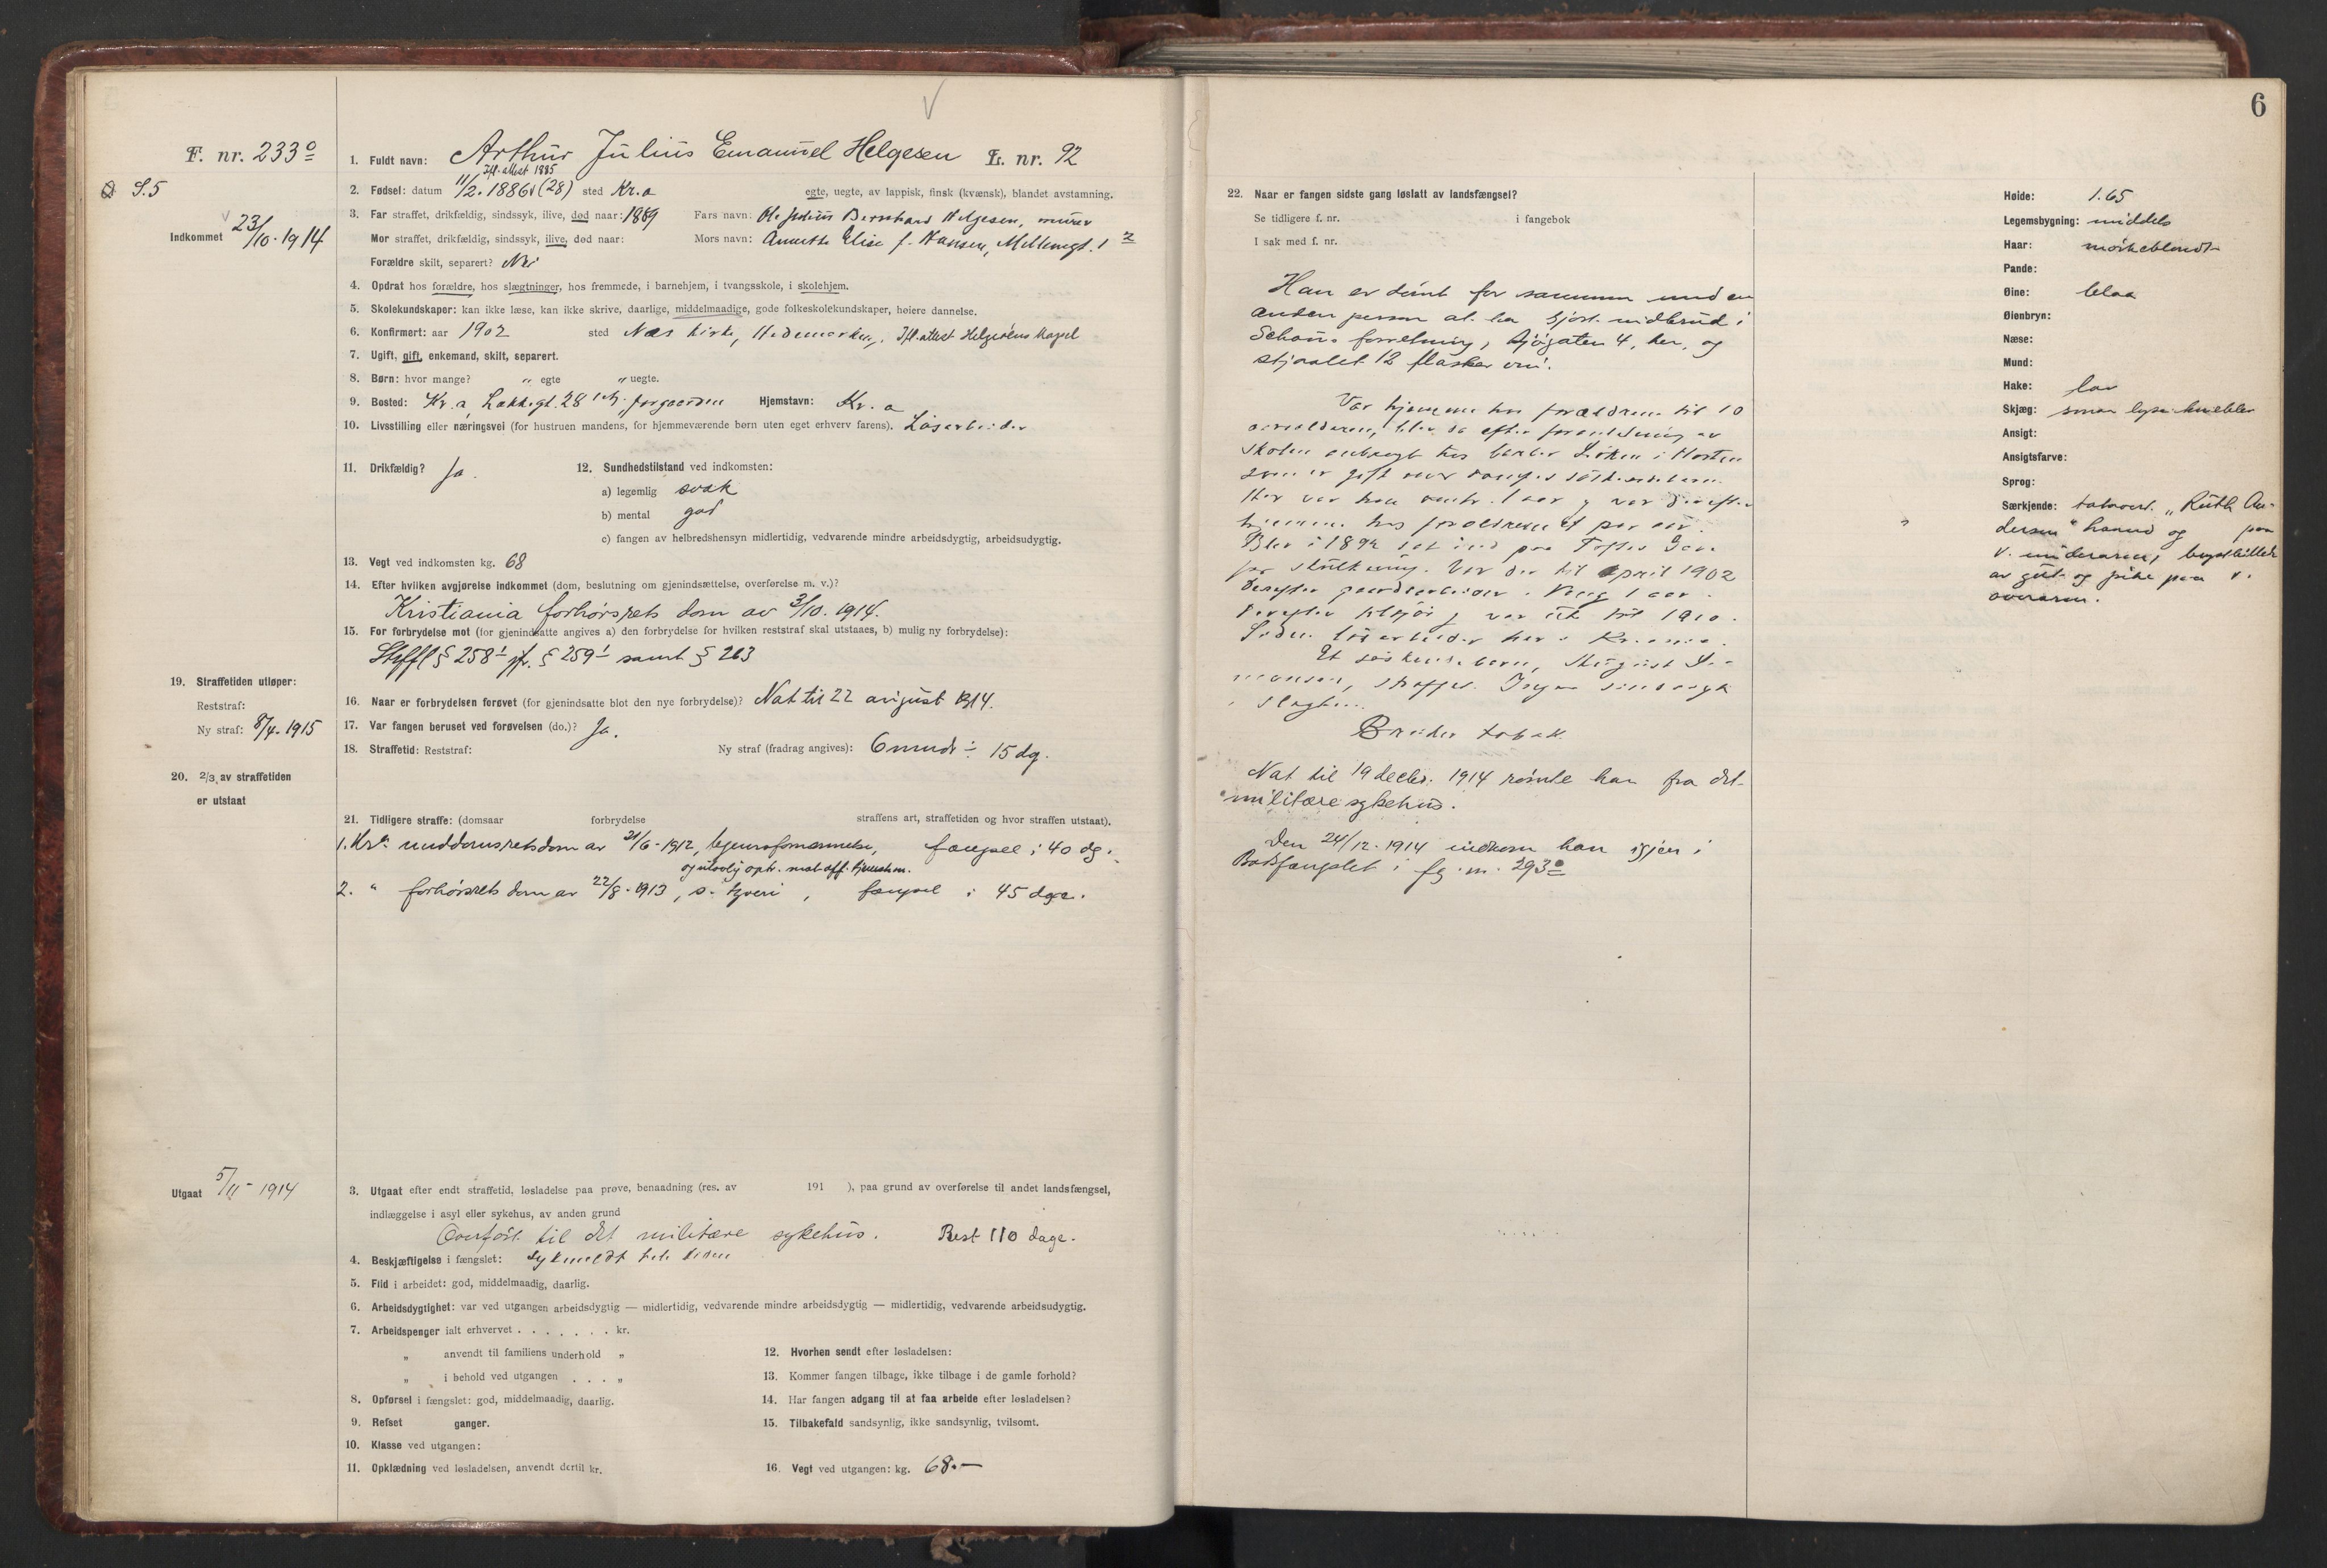 6
F. nr. 233º
S. 5
Indkommet 23/10. 1914
1. Fuldt navn: Arthur Julius Emanuel Helgesen L. nr. 92
Ifl. attest 1885
2. Fødsel: datum 11/2. 1886 (28) sted Kr.a egte, uegte, av lappisk, finsk (kvænsk), blandet avstamning.
3. Far straffet, drikfældig, sindssyk, ilive, død naar: 1889 Fars navn: Ole Julius Bernhard Helgesen, murer
Mor straffet, drikfældig, sindssyk, ilive, død naar: Mors navn: Annette Elise f. Hansen, Møllergt. 1
Forældre skilt, separert? Nei
4. Opdrat hos forældre, hos slægtninger, hos fremmede, i barnehjem, i tvangsskole, i skolehjem.
5. Skolekundskaper: kan ikke læse, kan ikke skrive, daarlige, middelmaadige, gode folkeskolekundskaper, høiere dannelse.
6. Konfirmert: aar 1902 sted Næs kirke, Hedemarken, Ifl. attest Helgøens kapel
7. Ugift, gift, enkemand, skilt, separert.
8. Børn: hvor mange? " egte " uegte.
9. Bosted: Kr.a, Lakkegt. 28 Hjemstavn: Kr.a
10. Livsstilling eller næringsvei (for hustruen mandens, for hjemmeværende børn uten eget erhverv farens). Løsarbeider
11. Drikfældig? Ja. 12. Sundhedstilstand ved indkomsten:
a) legemlig svak
b) mental god
c) fangen av helbredshensyn midlertidig, vedvarende mindre arbeidsdygtig, arbeidsudygtig.
13. Vegt ved indkomsten kg. 68
14. Efter hvilken avgjørelse indkommet (dom, beslutning om gjenindsættelse, overførelse m. v.)?
Kristiania forhørsrets dom av 3/10. 1914.
15. For forbrydelse mot (for gjenindsatte angives a) den forbrydelse for hvilken reststraf skal utstaaes, b) mulig ny forbrydelse):
Strffl § 258¹ jfr. § 259¹ samt § 263
19. Straffetiden utløper:
Reststraf:
Ny straf: 8/4. 1915
16. Naar er forbrydelsen forøvet (for gjenindsatte blot den nye forbrydelse)? Nat til 22 august 1914.
17. Var fangen beruset ved forøvelsen (do.)? Ja.
18. Straffetid: Reststraf: Ny straf (fradrag angives): 6 mndr ÷ 15 dg.
20. 2/3 av straffetiden
er utstaat
21. Tidligere straffe: (domsaar forbrydelse straffens art, straffetiden og hvor straffen utstaat).
1. Kr.a meddomsretsdom av 21/6-1912, legemsfornærmelse, fængsel i 40 dg.
og ulovlig optr. mot off. tjenestem.
2. " forhørsrets dom av 22/8-1913, s. tyveri, fængsel i 45 dge.
Utgaat 5/11-1914
3. Utgaat efter endt straffetid, løsladelse paa prøve, benaadning (res. av 191 ), paa grund av overførelse til andet landsfængsel,
indlæggelse i asyl eller sykehus, av anden grund
Overført til det militære sykehus. Rest 110 dage.
4. Beskjæftigelse i fængslet: Sykmeldt hele tiden
5. Flid i arbeidet: god, middelmaadig, daarlig.
6. Arbeidsdygtighet: var ved utgangen arbeidsdygtig — midlertidig, vedvarende mindre arbeidsdygtig — midlertidig, vedvarende arbeidsudygtig.
7. Arbeidspenger ialt erhvervet . . . . . . . kr.
" anvendt til familiens underhold "
" i behold ved utgangen . . . "
8. Opførsel i fængslet: god, middelmaadig, daarlig.
9. Refset ganger.
10. Klasse ved utgangen:
11. Opklædning ved løsladelsen, anvendt dertil kr.
12. Hvorhen sendt efter løsladelsen:
13. Kommer fangen tilbage, ikke tilbage i de gamle forhold?
14. Har fangen adgang til at faa arbeide efter løsladelsen?
15. Tilbakefald sandsynlig, ikke sandsynlig, tvilsomt.
16. Vegt ved utgangen: kg. 68.—
22. Naar er fangen sidste gang løslatt av landsfængsel?
Se tidligere f. nr. i fangebok
I sak med f. nr.
Han er dømt for sammen med en
anden person at ha gjort indbrud i
Schous forretning, Sjøgaten 4, her, og
stjaalet 12 flasker vin.
Var hjemme hos forældrene til 10
aarsalderen, blev da efter foranledning av
skolen anbragt hos
som er gift med
Her var han omtr. 1 aar og var derefter
hjemme hos forældrene et par aar.
Blev i 1894 sat ind paa Toftes Gave
for skulkning. Var der til april 1902
derefter gaardsarbeider i 1 aar.
Derefter tilsjøs og var ute til 1910.
Siden løsarbeider her i Kr.ania.
Et søskendebarn, August
straffet. Ingen sindssyk
i slegten.
Bruker tobak.
Nat til 19 decbr. 1914 rømte han fra det
militære sykehus.
Den 24/12. 1914 indkom han igjen i
Botsfængslet i fg. nr. 293º
Høide: 1.65
Legemsbygning: middels
Haar: mørkeblondt
Pande:
Øine: blaa
Øienbryn:
Næse:
Mund:
Hake: lav
Skjæg: smaa lyse knebler
Ansigt:
Ansigtsfarve:
Sprog:
Særkjende: tatovert. "Ruth An-
dersen" haand og paa
v. underarm, brystbillede
av gut og pike paa v.
overarm.